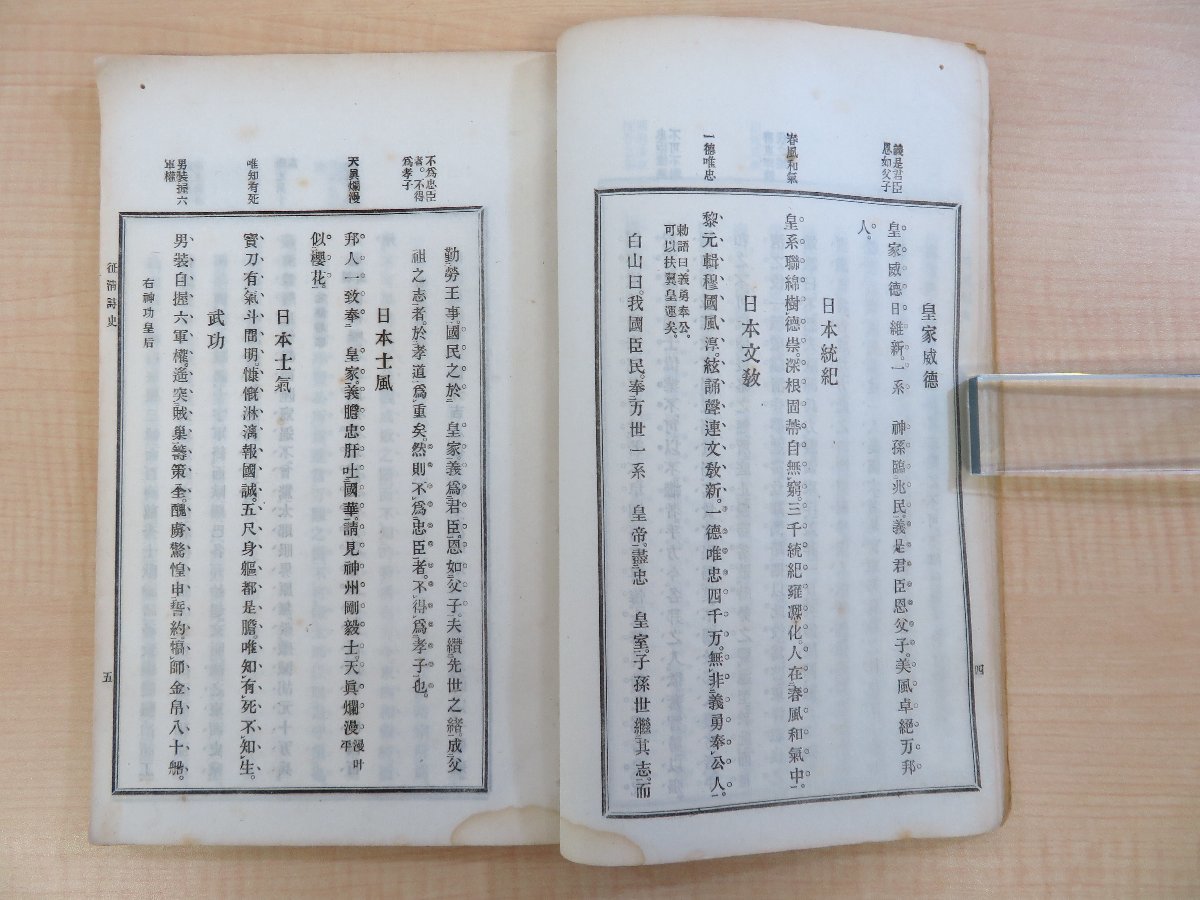 義是君臣
恩如父子
皇家威德
皇家威德日維新。一系　神孫臨兆民。義是君臣恩父子。美風卓絕万邦
人。
春風和氣
日本統紀
皇系聯綿樹德崇。深根固蔕自無窮。三千統紀雍凞化。人在春風和氣中。
一德唯忠
日本文敎
黎元輯穆國風淳。絃誦聲連文敎新。一德唯忠四千万。無非義勇奉公人。
勅語曰。義勇奉公。
可以扶翼皇運矣。
白山曰。我國臣民。奉万世一系　皇帝。盡忠　皇室。子孫世繼其志。而
四
不爲忠臣
者。不得
爲孝子
勤勞王事。國民之於　皇家。義爲君臣。恩如父子。夫纘先世之緒。成父
祖之志者。於孝道爲重矣。然則不爲忠臣者。不得爲孝子也。
天眞爛漫
日本士風
邦人一致奉　皇家。義膽忠肝吐國華。請見神州剛毅士。天眞爛漫漫叶平
似櫻花。
唯知有死
日本士氣
寳刀有氣斗間明。慷慨淋漓報國誠。五尺身軀都是膽。唯知有死不知生。
武功
男裝握六
軍權
男裝自握六軍權。遥突賊巢籌策全。醜虜驚惶申誓約。犒師金帛八十船。
右神功皇后
征淸詩史
五